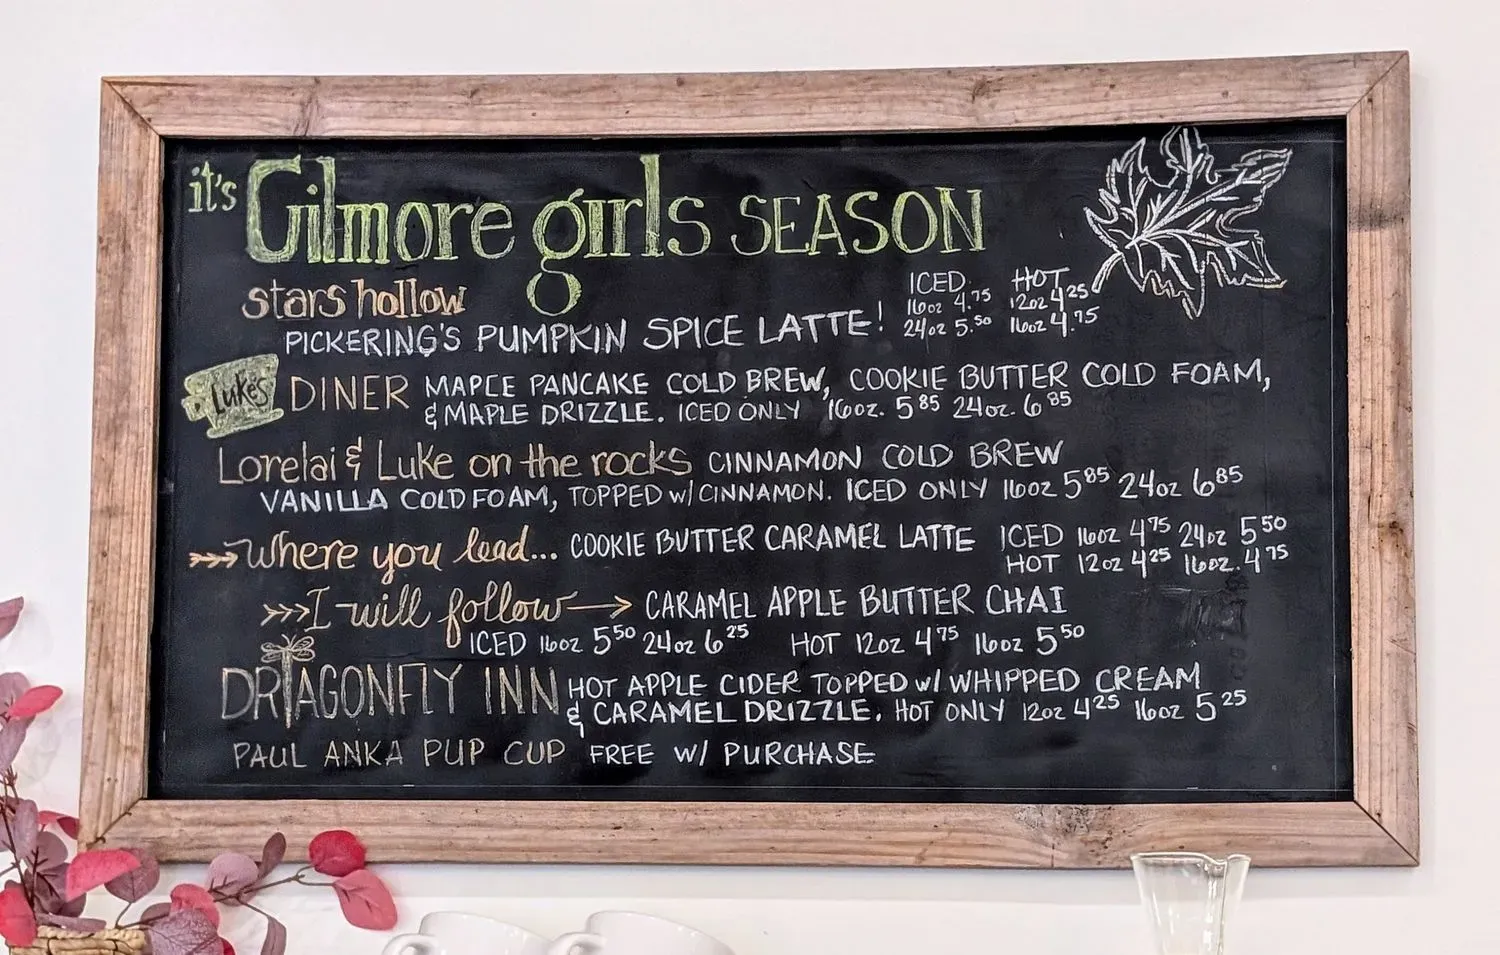 it's Gilmore girls SEASON
stars hollow
ICED HOT
16oz 4.75 12oz 4.25
PICKERING'S PUMPKIN SPICE LATTE! 24oz 5.50 16oz 4.75
Luke's DINER MAPLE PANCAKE COLD BREW, COOKIE BUTTER COLD FOAM,
& MAPLE DRIZZLE. ICED ONLY 16oz. 5 85 24oz. 6 85
Lorelai & Luke on the rocks CINNAMON COLD BREW
VANILLA COLD FOAM, TOPPED w/ CINNAMON. ICED ONLY 16oz 5 85 24oz 6 85
Where you lead... COOKIE BUTTER CARAMEL LATTE ICED 16oz 4 75 24oz 5 50
HOT 12oz 4 25 16oz. 4 75
I will follow CARAMEL APPLE BUTTER CHAI
ICED 16oz 5 50 24oz 6 25 HOT 12oz 4 75 16oz 5 50
DRAGONFLY INN HOT APPLE CIDER TOPPED w/ WHIPPED CREAM
& CARAMEL DRIZZLE. HOT ONLY 12oz 4 25 16oz 5 25
PAUL ANKA PUP CUP FREE W/ PURCHASE